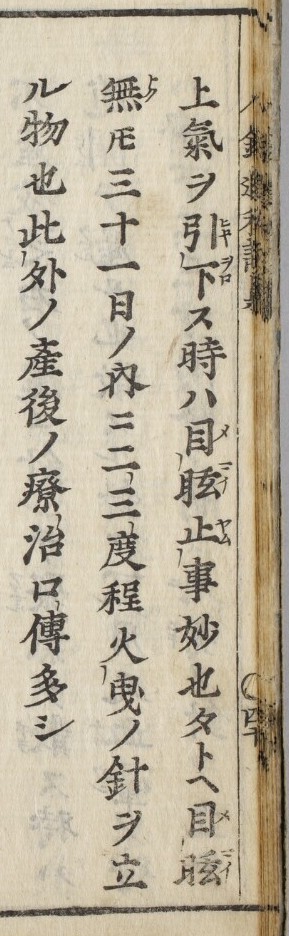 上氣ヲ引下ス時ハ目眩止事妙也タトヘ目眩
無𪜈三十一日ノ内ニ二三度程火曳ノ針ヲ立
ル物也此外ノ產後ノ療治口傳多シ